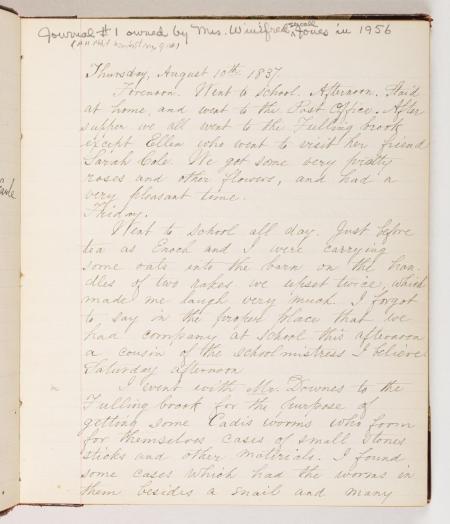 Journal #1 owned by Mrs. Winifred Jones in 1956
Thursday, August 10th 1837
Forenoon. Went to school. Afternoon. Staid
at home, and went to the Post Office. After
supper we all went to the Fulling brook
except Ellen who went to visit her friend
Sarah Cole. We got some very pretty
roses and other flowers, and had a
very pleasant time.
Friday.
Went to school all day. Just before
tea as Enoch and I were carrying
some oats into the barn on the han-
dles of two rakes we upset twice, which
made me laugh very much. I forgot
to say in the proper place that we
had company at school this afternoon
a cousin of the schoolmistress I believe
Saturday afternoon
I went with Mr. Downes to the
Fulling brook for the purpose of
getting some Cadis worms who form
for themselves cases of small stones
sticks and other materials. I found
some cases which had the worms in
them besides a snail and many